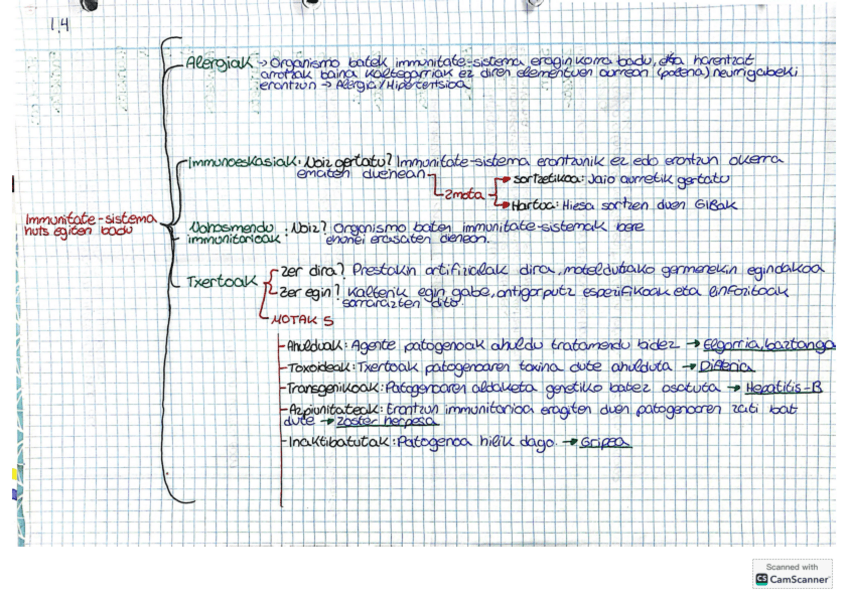 1.4
Alergiak → Organismo batek immunitate-sistema eraginkorra badu, eta harentzat
arrotzak baina kaltegarriak ez diren elementuen aurrean (polena) neurrigabeki
erantzun → Alergia/Hipertentsioa
Immunoeskasiak · Noiz gertatu? Immunitate-sistema erantzunik ez edo erantzun okerra
ematen duenean
2 mota
Sortzetikoa: Jaio aurretik gertatu
Hartua: Hiesa sortzen duen GIBak
Immunitate-sistema
huts egiten badu
Nahasmendu : Noiz? Organismo baten immunitate-sistemak bere
immunitarioak ehunei erasaten dienean.
Txertoak
Zer dira? Prestakin artifizialak dira, moteldutako germenekin egindakoa
Zer egin? Kalterik egin gabe, antigorputz espezifikoak eta linfozitoak
sorrarazten ditu.
MOTAK 5
-Ahulduak: Agente patogenoak ahuldu tratamendu bidez → Elgorria, baztanga
-Toxoideak: Txertoak patogenoaren toxina dute ahulduta → Difteria
-Transgenikoak: Patogenoaren aldaketa genetiko batez osatuta → Hepatitis-B
-Azpiunitateak: Erantzun immunitarioa eragiten duen patogenoaren zati bat
dute → Zoster herpesa
-Inaktibatutak: Patogenoa hilik dago. → Gripea
Scanned with
CS CamScanner